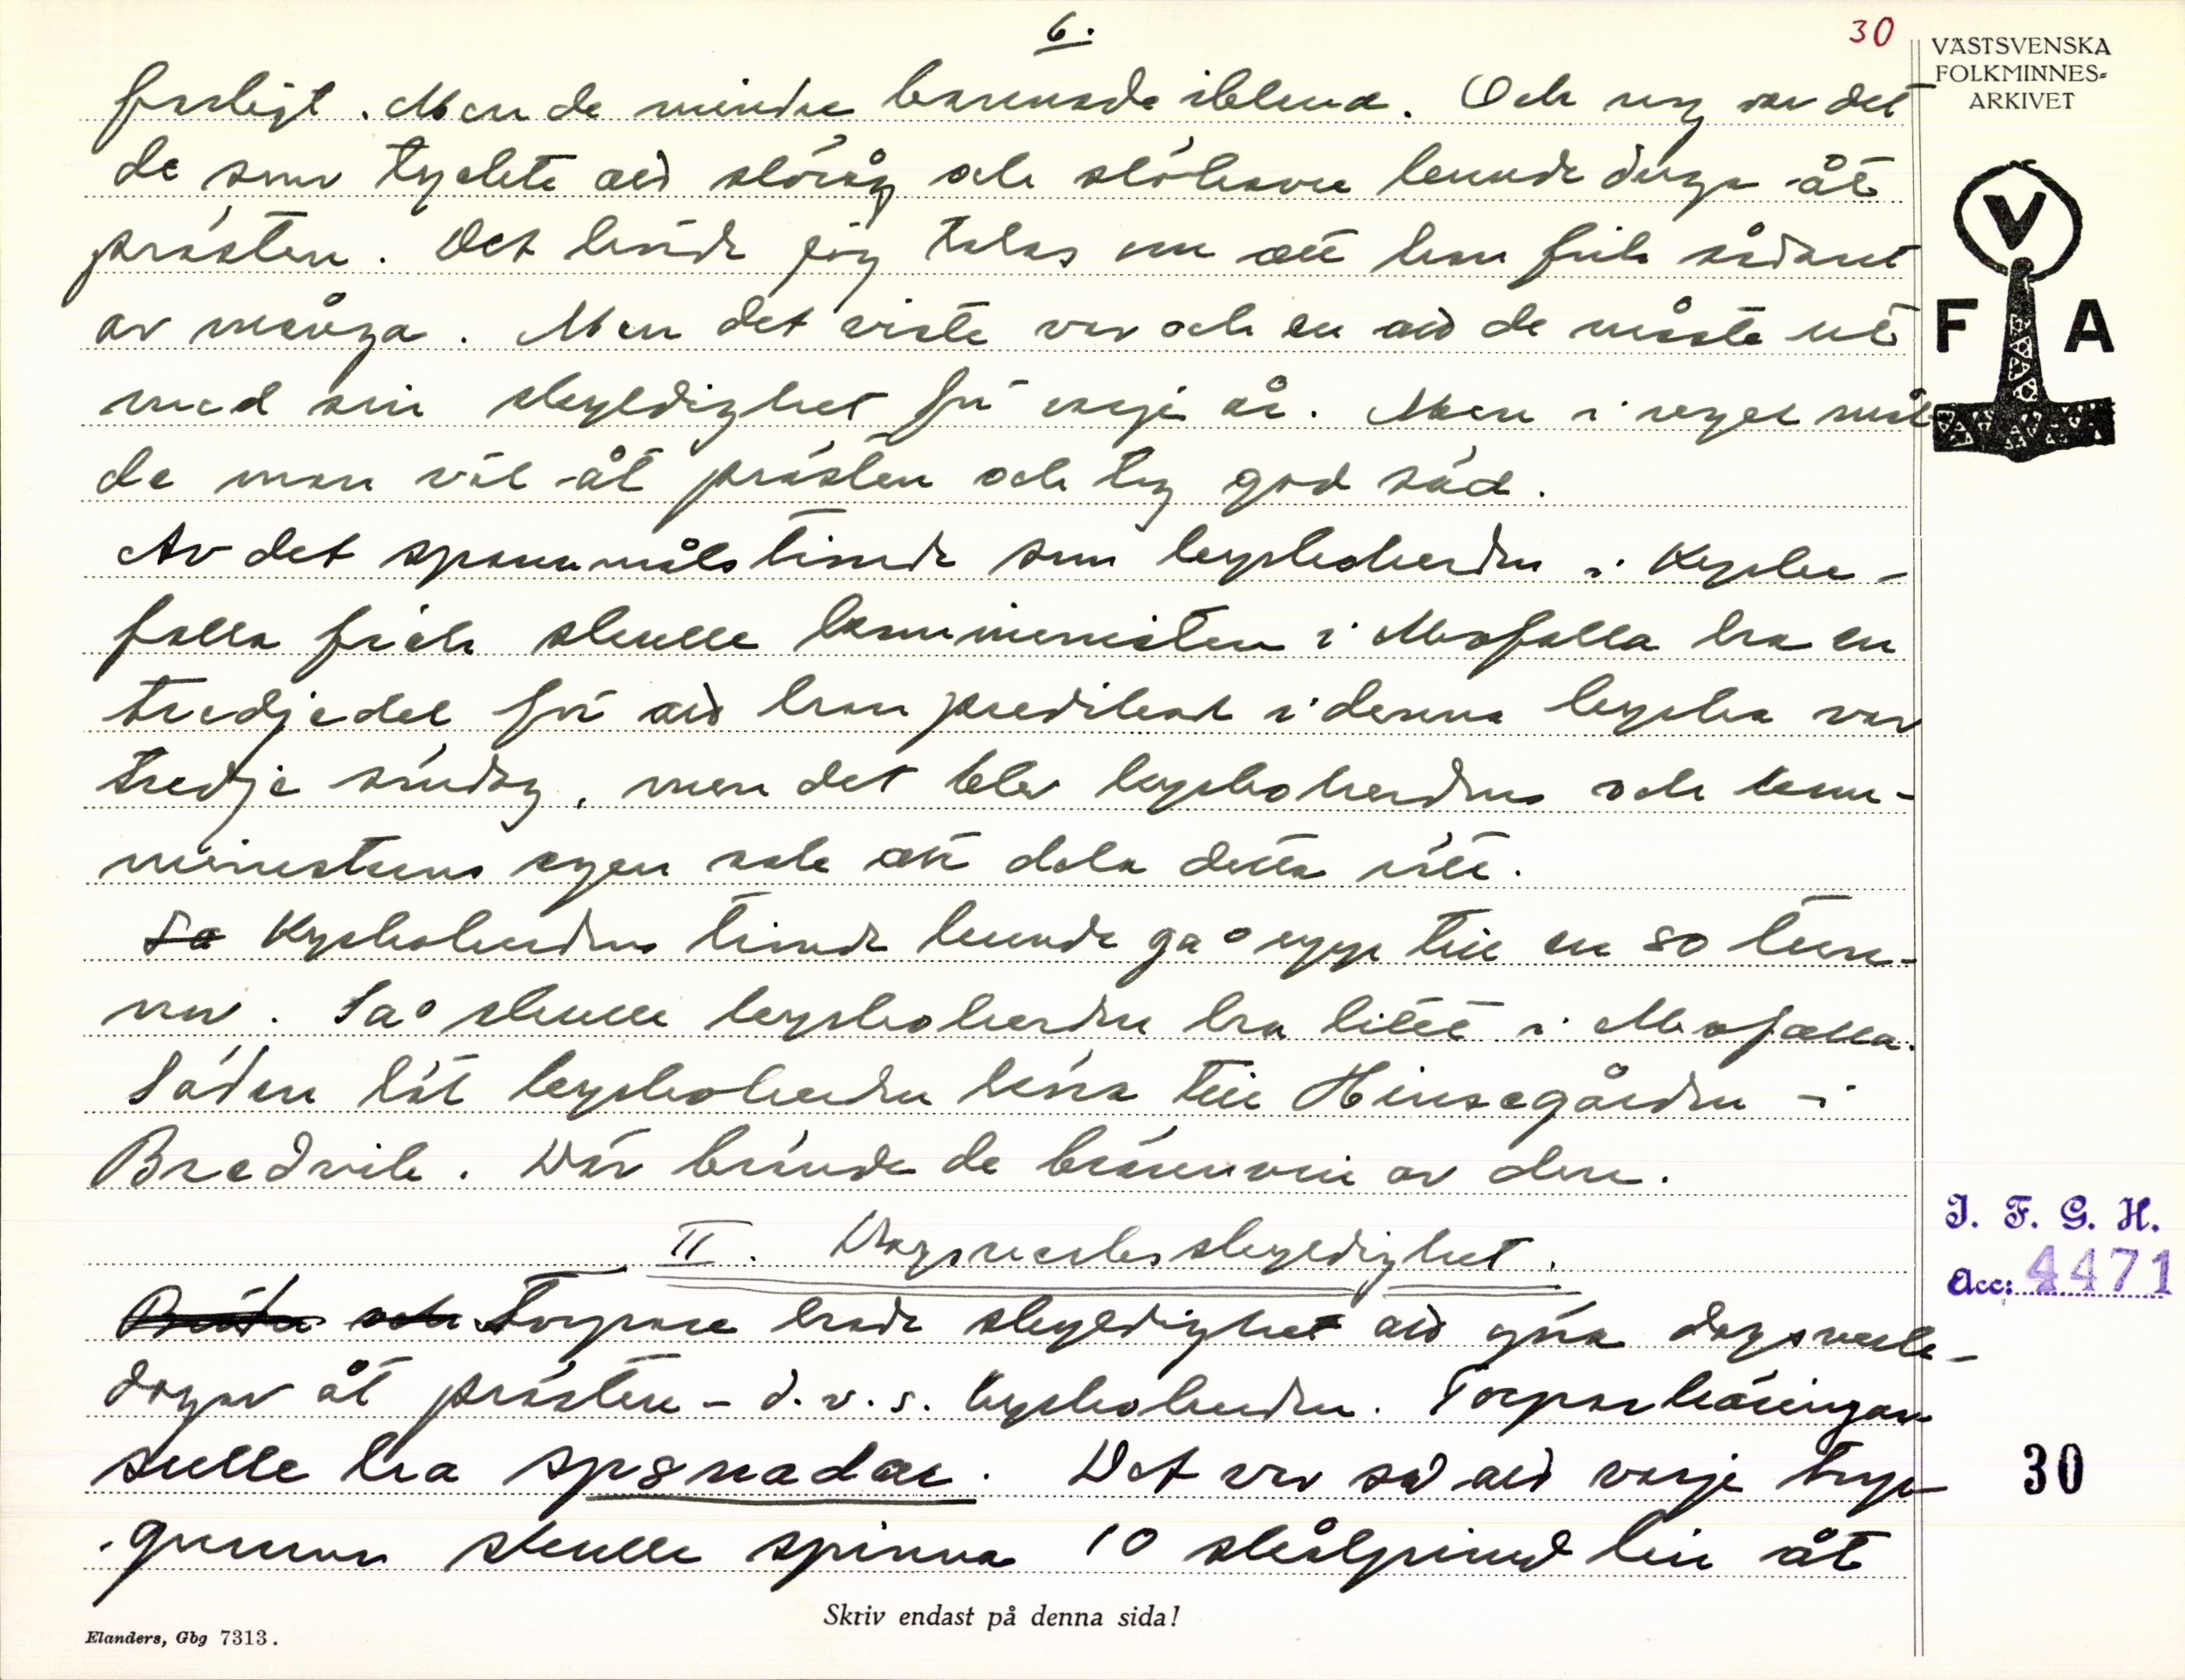 6.
30
VÄSTSVENSKA
FOLKMINNES-
ARKIVET
farligt. Men de mindre krånade ibland. Och nog var det
de som tyckte att slöråg och slökorn kunde duga åt
prästen. Det hörde jag talas om att han fick sådant
av många. Men det visste var och en att de måste ut
med sin skyldighet för varje år. Men i regel mät-
de man väl åt prästen och tog god säd.
Av det spannmålstionde som kyrkoherden i Kyrke-
falla fick skulle komministern i Mofalla ha en
tredjedel för att han predikat i denna kyrka var
tredje söndag, men det blev kyrkoherdens och kom-
ministerns egen sak att dela detta rätt.
Kyrkoherdens tionde kunde gå upp till en 80 tun-
nor. Så skulle kyrkoherden ha litet i Mofalla.
Säden lät kyrkoherden köra till Hinsegården i
Bredvik. Där brände de brännvin av den.
II. Dagsverksskyldighet.
Torpare hade skyldighet att göra dagsverks-
dagar åt prästen - d.v.s. kyrkoherden. Torparkäringar
sulle ha spsnadar. Det var så att varje torpar-
gumma skulle spinna 10 skålpund lin åt
V
F A
I. F. G. H.
Acc: 4471
30
Skriv endast på denna sida!
Elanders, Gbg 7313.